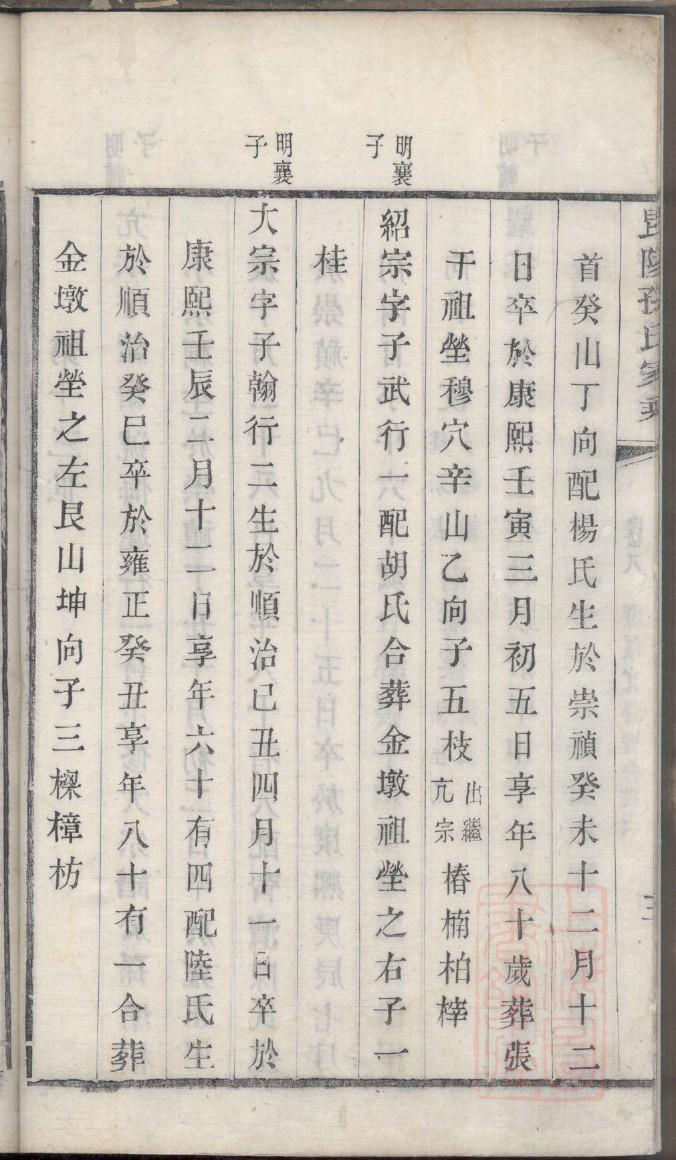 暨陽孫氏家乘
首癸山丁向配楊氏生於崇禎癸未十二月十二
日卒於康熙壬寅三月初五日享年八十歲葬張
干祖塋穆穴辛山乙向子五枝出繼亢宗椿楠柏梓
明襄子
紹宗字子武行一配胡氏合葬金墩祖塋之右子一
桂
明襄子
大宗字子翰行二生於順治己丑四月十一日卒於
康熙壬辰二月十二日享年六十有四配陸氏生
於順治癸巳卒於雍正癸丑享年八十有一合葬
金墩祖塋之左艮山坤向子三樑樟枋